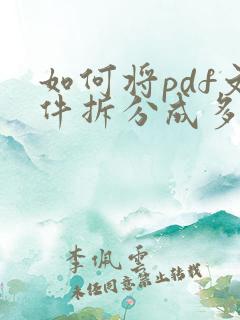 如何将pdf文
件拆分成多
李佩雲
未任同意禁止转载